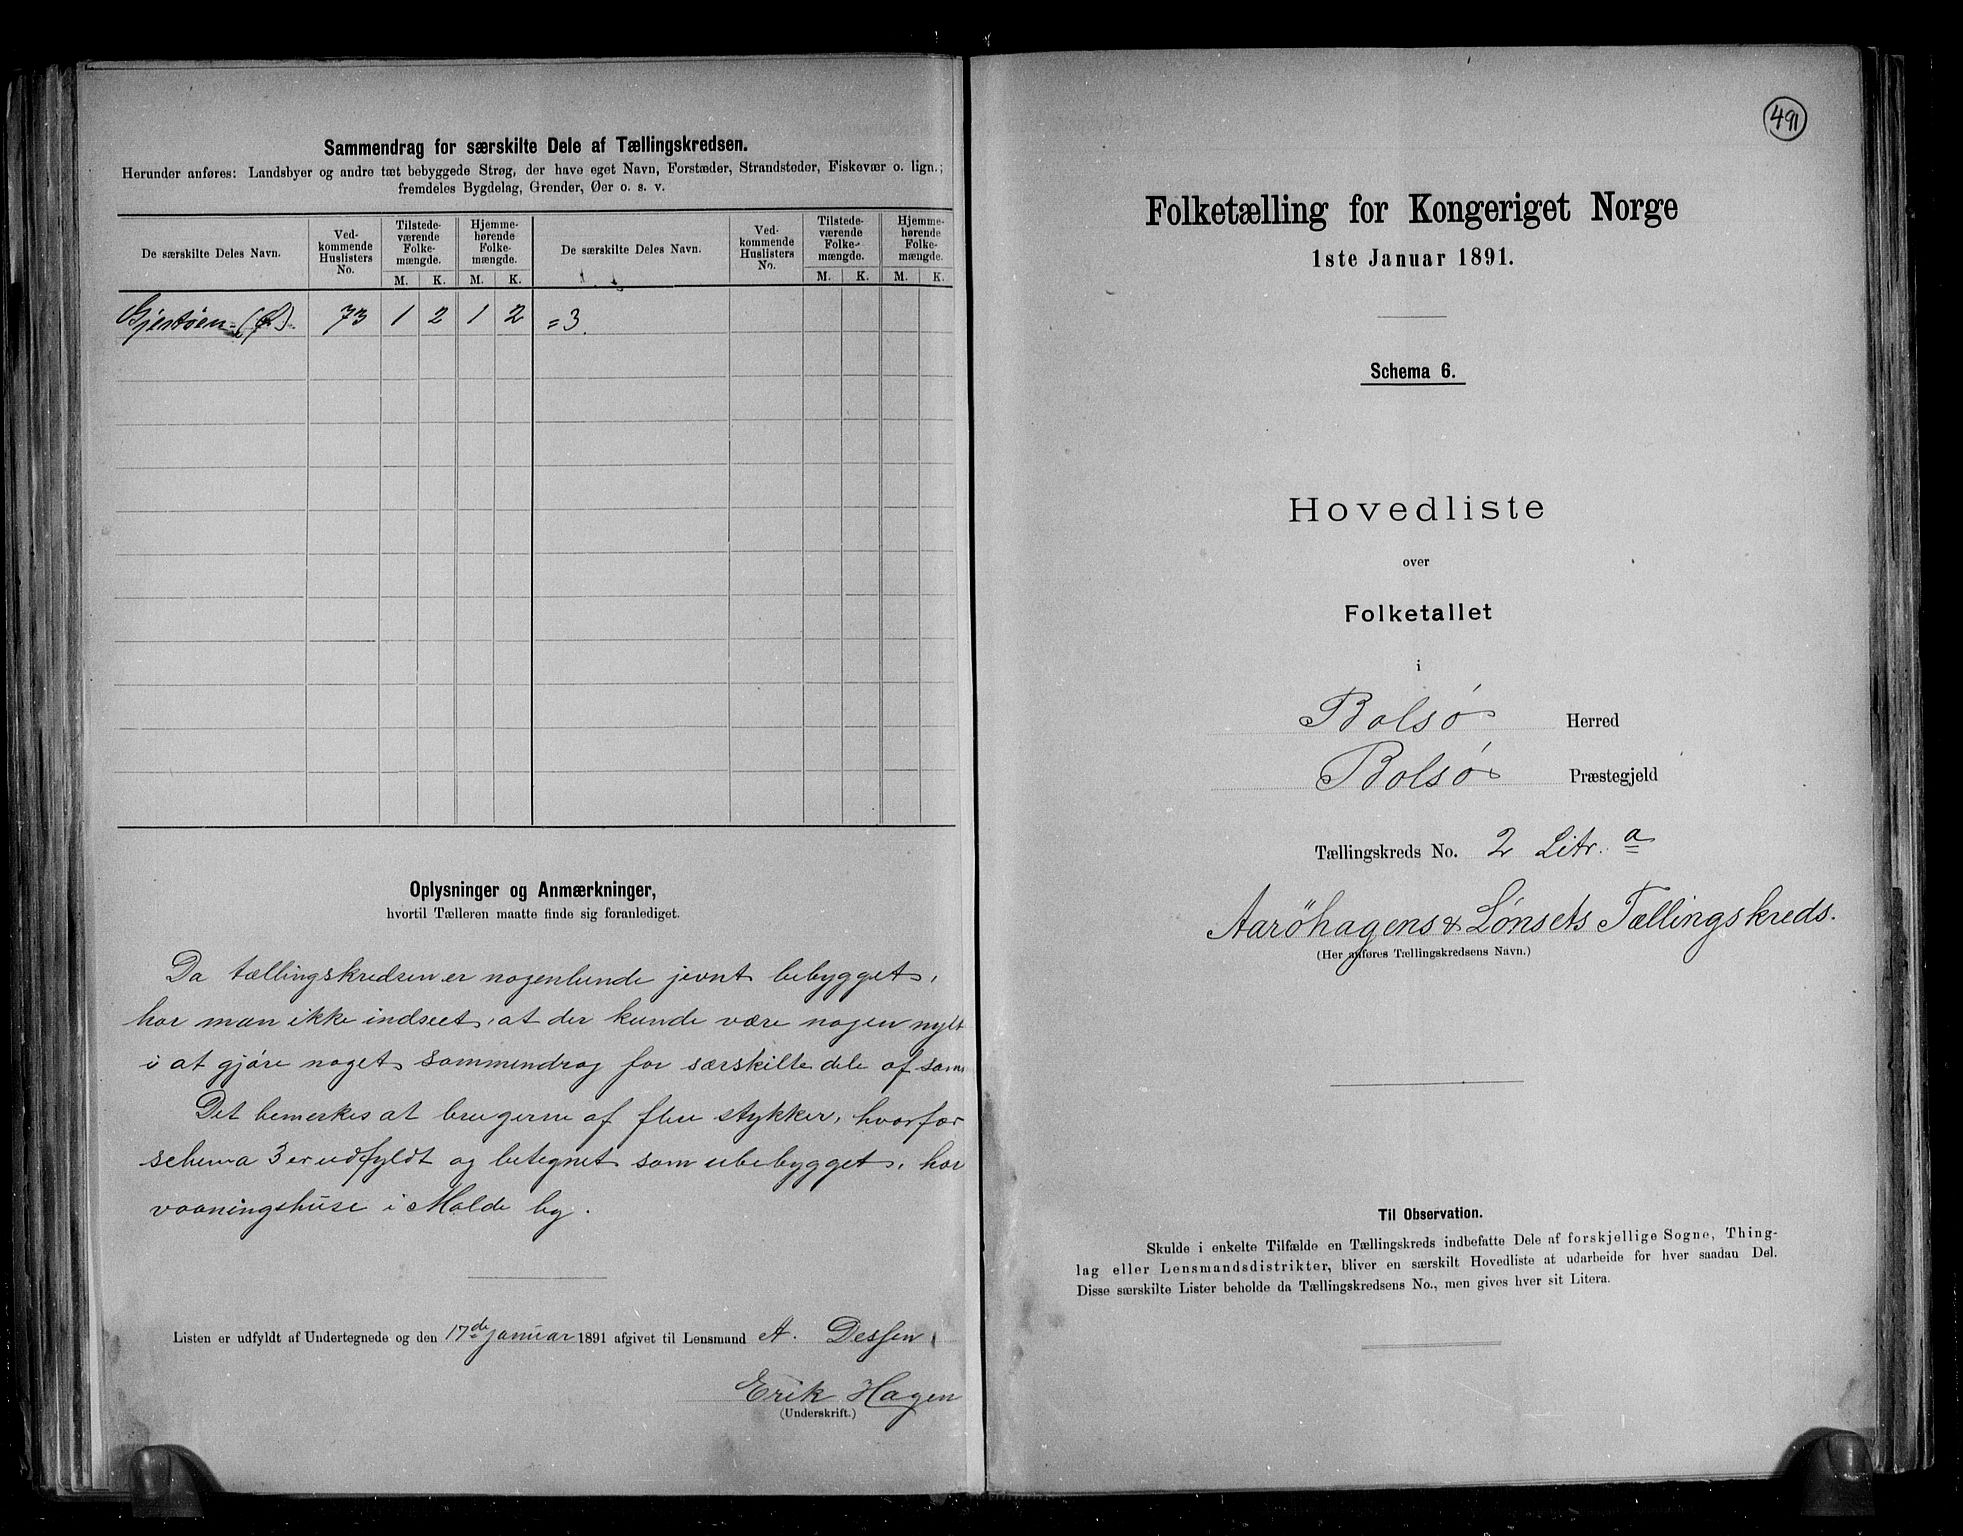 Sammendrag for særskilte Dele af Tællingskredsen.
Herunder anføres: Landsbyer og andre tæt bebyggede Strøg, der have eget Navn, Forstæder, Strandsteder, Fiskevær o. lign.;
fremdeles Bygdelag, Grender, Øer o. s. v.
De særskilte Deles Navn.
Ved-
kommende
Huslisters
No.
Tilstede-
værende
Folke-
mængde.
M. K.
Hjemme-
hørende
Folke-
mængde.
M. K.
De særskilte Deles Navn.
Ved-
kommende
Huslisters
No.
Tilstede-
værende
Folke-
mængde.
M. K.
Hjemme-
hørende
Folke-
mængde.
M. K.
Gjertøen (Ø). 73 1 2 1 2 =3.
Oplysninger og Anmærkninger,
hvortil Tælleren maatte finde sig foranlediget.
Da tællingskredsen er nogenlunde jevnt bebygget,
har man ikke indseet, at der kunde være nogen nytt
i at gjøre noget sammendrag for særskilte dele af sam
Det bemerkes at brugerne af flere stykker, hvorfor
schema 3 er udfyldt og betegnet som ubebygget, har
vaaningshuse i Molde by.
Listen er udfyldt af Undertegnede og den 17de januar 1891 afgivet til Lensmand A. Dessen
Erik Hagen
(Underskrift.)
491
Folketælling for Kongeriget Norge
1ste Januar 1891.
Schema 6.
Hovedliste
over
Folketallet
i
Bolsø Herred
Bolsø Præstegjeld
Tællingskreds No. 2 Litr. a
Aarøhagens & Lønsets Tællingskreds.
(Her anføres Tællingskredsens Navn.)
Til Observation.
Skulde i enkelte Tilfælde en Tællingskreds indbefatte Dele af forskjellige Sogne, Thing-
lag eller Lensmandsdistrikter, bliver en særskilt Hovedliste at udarbeide for hver saadan Del.
Disse særskilte Lister beholde da Tællingskredsens No., men gives hver sit Litera.